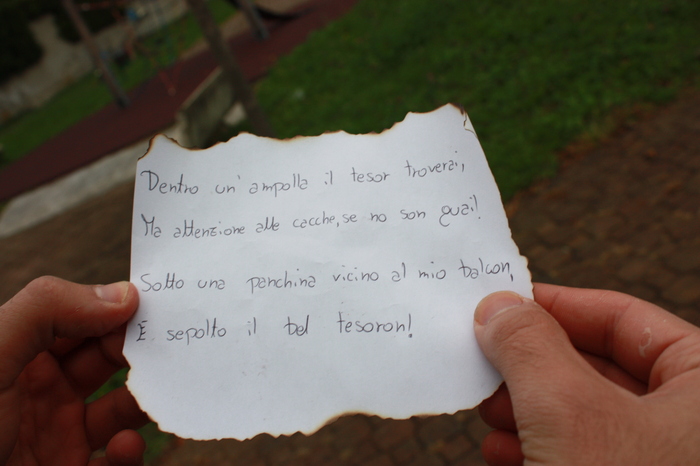 Dentro un'ampolla il tesor troverai,
Ma attenzione alle cacche, se no son guai!
Sotto una panchina vicino al mio balcon,
È sepolto il bel tesoron!